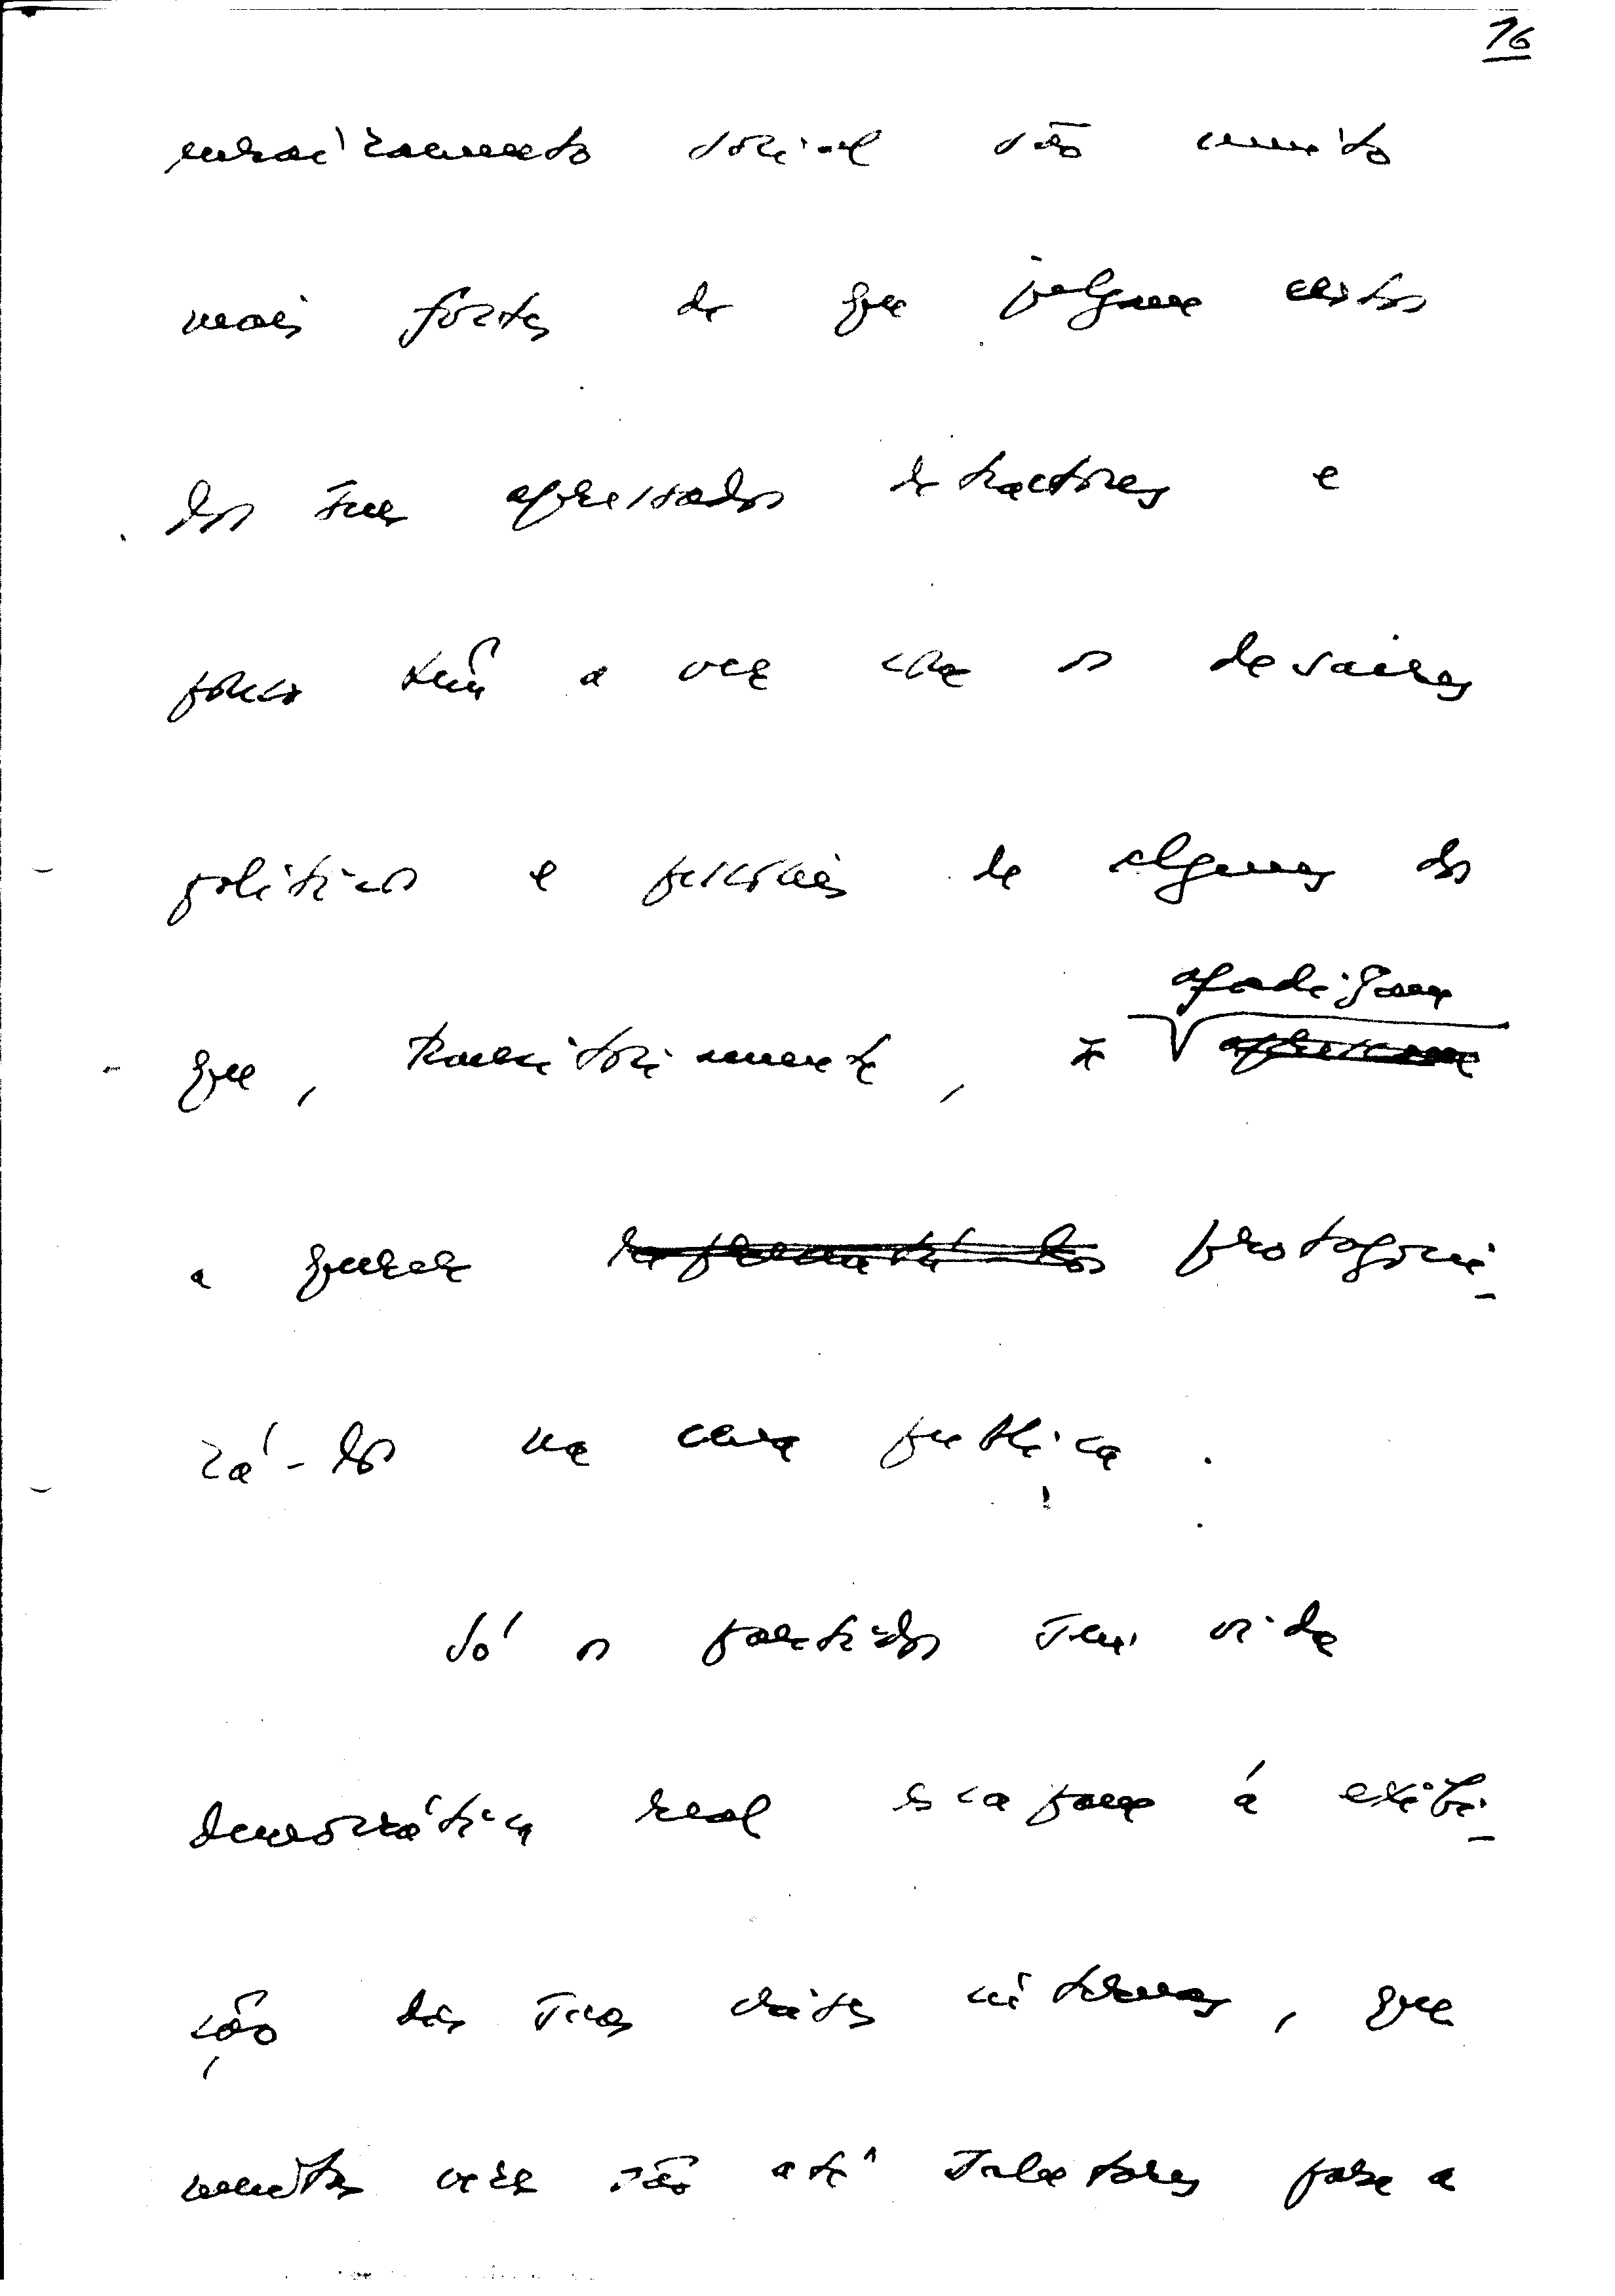 16
enraizamento social são muito
mais fortes do que julgam certos
dos seus apressados detractores e
pouco têm a ver com os desaires
políticos e pessoais de alguns dos
que, transitoriamente, se afadigam
a querer protagoni-
zá-los na cena publica.
Só os partidos sem vida
democrática real escapam á exibi-
ção das suas crises internas, que
muitas vezes são até salutares para a